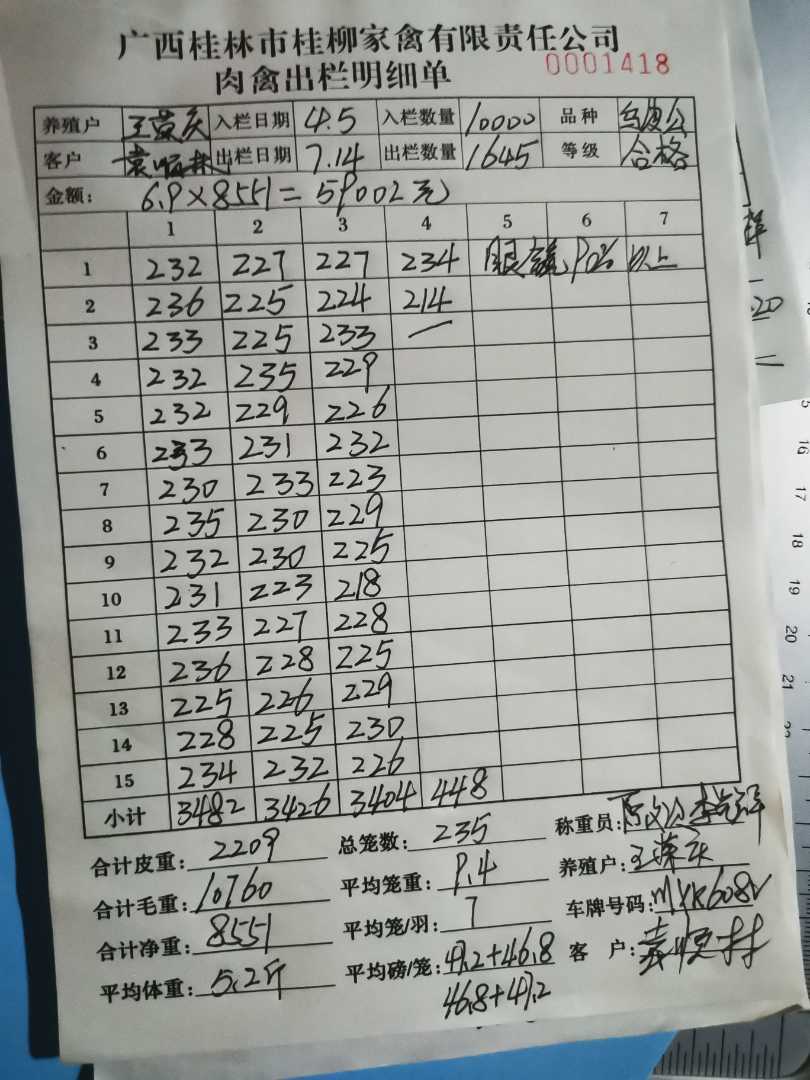 广西桂林市桂柳家禽有限责任公司
肉禽出栏明细单 0001418
养殖户 王 庆 入栏日期 4.5 入栏数量 10000 品种
客户 袁顺林 出栏日期 7.14 出栏数量 1645 等级 合格
金额: 6.9×8551=59002元
1 2 3 4 5 6 7
1 232 227 227 234 90% 以上
2 236 225 224 214
3 233 225 233 —
4 232 235 229
5 232 229 226
6 233 231 232
7 230 233 223
8 235 230 229
9 232 230 225
10 231 223 218
11 233 227 228
12 236 228 225
13 225 226 229
14 228 225 230
15 234 232 226
小计 3482 3426 3404 448
合计皮重: 2209 总笼数: 235 称重员:
合计毛重: 10760 平均笼重: 9.4 养殖户: 王 庆
合计净重: 8551 平均笼/羽: 7 车牌号码:
平均体重: 5.2斤 平均磅/笼: 47.2+46.8 客户: 袁顺林
46.8+47.2